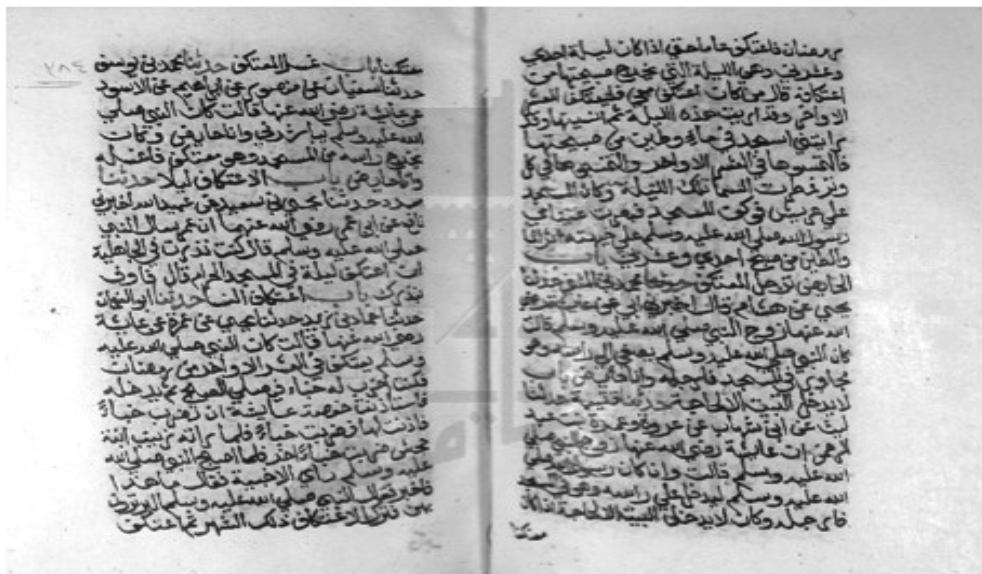 رمضان فاعتكف عاما حتى اذا كان ليلة احدي
وعشرين وهي الليلة التي يخرج من صبيحتها من
اعتكافه قال من كان اعتكف معي فليعتكف العشر
الاواخر وقد اريت هذه الليلة ثم انسيتها وقد
رايتني اسجد في ماء وطين من صبيحتها
فالتمسوها في العشر الاواخر والتمسوها في كل
وتر فمطرت السما تلك الليلة وكان المسجد
علي عريش فوكف المسجد فبصرت عيناي
رسول الله صلي الله عليه وسلم علي جبهته اثر الما
والطين من صبح احدي وعشرين باب
الحايض ترجل المعتكف حدثنا محمد بن المثني حدثنا
يحيي عن هشام قال اخبرني ابي عن عايشة رضي
الله عنها زوج النبي صلي الله عليه وسلم قالت
كان النبي صلي الله عليه وسلم يصغي الي راسه وهو
مجاور في المسجد فارجله وانا حايض باب
لا يدخل البيت الا لحاجة حدثنا قتيبة حدثنا
ليث عن ابن شهاب عن عروة وعمرة بنت عبد
الرحمن ان عايشة رضي الله عنها زوج النبي صلي
الله عليه وسلم قالت وان كان رسول الله صلي
الله عليه وسلم ليدخل علي راسه وهو في المسجد
فارجله وكان لا يدخل البيت الا لحاجة اذا كان
معتكفا
٢٨٤
معتكفا باب غسل المعتكف حدثنا محمد بن يوسف
حدثنا سفيان عن منصور عن ابراهيم عن الاسود
عن عايشة رضي الله عنها قالت كان النبي صلي
الله عليه وسلم يباشرني وانا حايض وكان
يخرج راسه من المسجد وهو معتكف فاغسله
وانا حايض باب الاعتكاف ليلا حدثنا
مسدد حدثنا يحيي بن سعيد عن عبيد الله اخبرني
نافع عن ابن عمر رضي الله عنهما ان عمر سال النبي
صلي الله عليه وسلم قال كنت نذرت في الجاهلية
ان اعتكف ليلة في المسجد الحرام قال فاوف
بنذرك باب اعتكاف النسا حدثنا ابو النعمان
حدثنا حماد بن زيد حدثنا يحيي عن عمرة عن عايشة
رضي الله عنها قالت كان النبي صلي الله عليه
وسلم يعتكف في العشر الاواخر من رمضان
فكنت اضرب له خباء فيصلي الصبح ثم يدخله
فاستاذنت حفصة عايشة ان تضرب خباءً
فاذنت لها فضربت خباءً فلما راته زينب ابنة
جحش ضربت خباءً اخر فلما اصبح النبي صلي الله
عليه وسلم راي الاخبية فقال ما هذا
فاخبر فقال النبي صلي الله عليه وسلم البر ترون
بهن فترك الاعتكاف ذلك الشهر ثم اعتكف